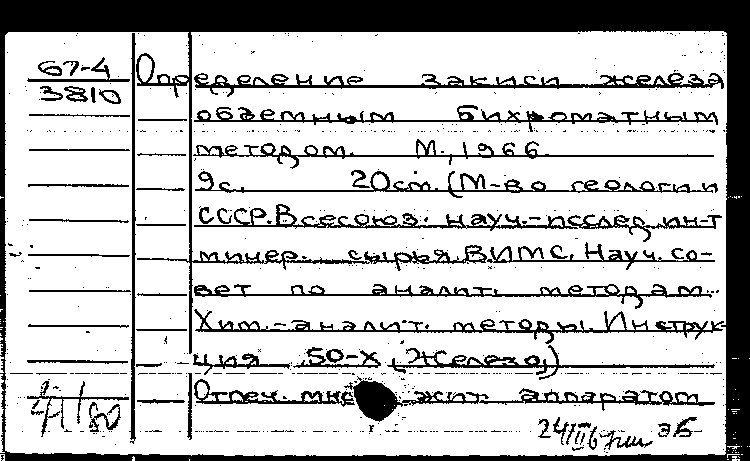 67-4
3810
Определение закиси железа
обаемным бихроматным
методом. М., 1966.
9с. 20см. (М-во геологии
СССР. Всесоюз. науч.-исслед. ин-т
минер. сырья. ВИМС. Науч. со-
вет по аналит. методам.
Хим.-аналит. методы. Инструк-
ция 50-Х (Железо))
Отпеч. аппаратом
эБ